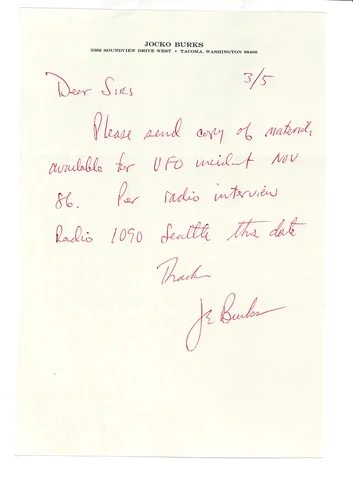 JOCKO BURKS
3302 SOUNDVIEW DRIVE WEST • TACOMA, WASHINGTON 98466
3/5
Dear Sirs
Please send copy of materials
available for UFO incident NOV
86. Per radio interview
Radio 1090 Seattle this date
Thanks
JE Burks